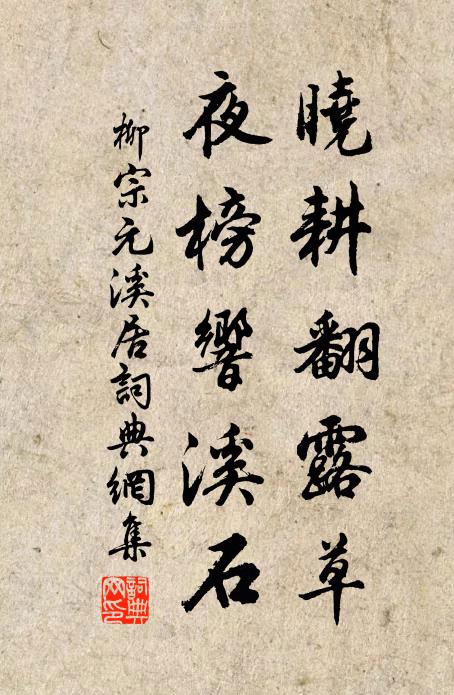 曉耕翻露草
夜榜響溪石
柳宗元溪居詞典網集
詞典網印